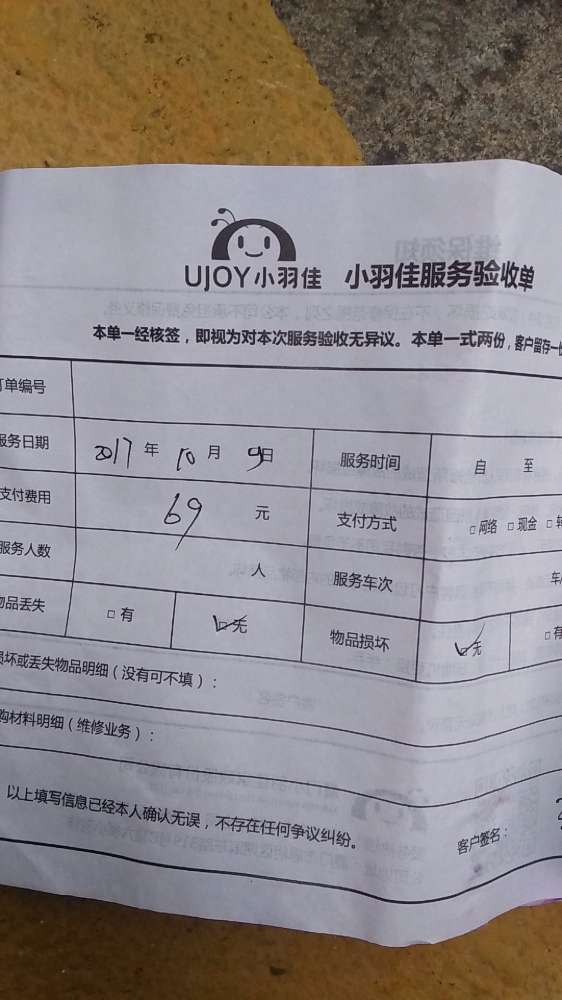 UJOY小羽佳 小羽佳服务验收单
本单一经核签，即视为对本次服务验收无异议。本单一式两份，客户留存一
订单编号
服务日期 2017年10月9日 服务时间 自 至
支付费用 69 元 支付方式 □网络 □现金 □
服务人数 人 服务车次 车
物品丢失 □有 ☑无 物品损坏 ☑无 □有
损坏或丢失物品明细（没有可不填）：
购材料明细（维修业务）：
以上填写信息已经本人确认无误，不存在任何争议纠纷。
客户签名：